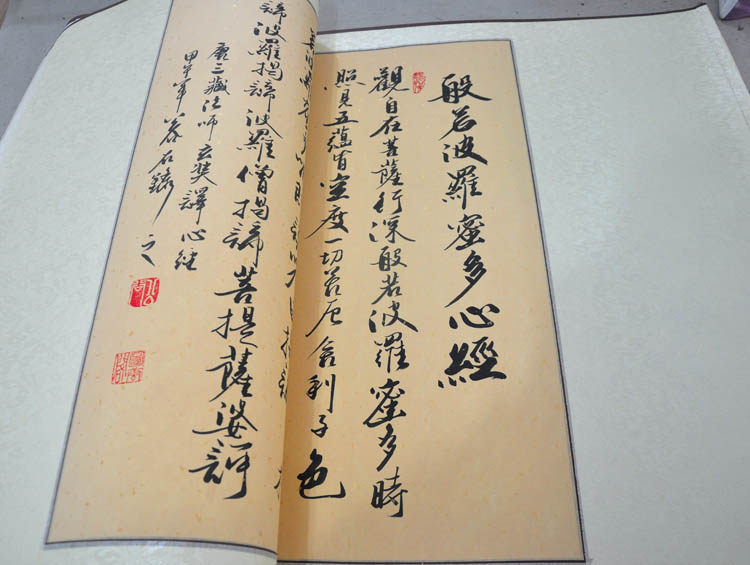 般若波羅蜜多心經
觀自在菩薩行深般若波羅蜜多時
照見五蘊皆空度一切苦厄舍利子色
諦波羅揭諦波羅僧揭諦菩提薩婆訶
唐三藏法師玄奘譯心經
甲午年